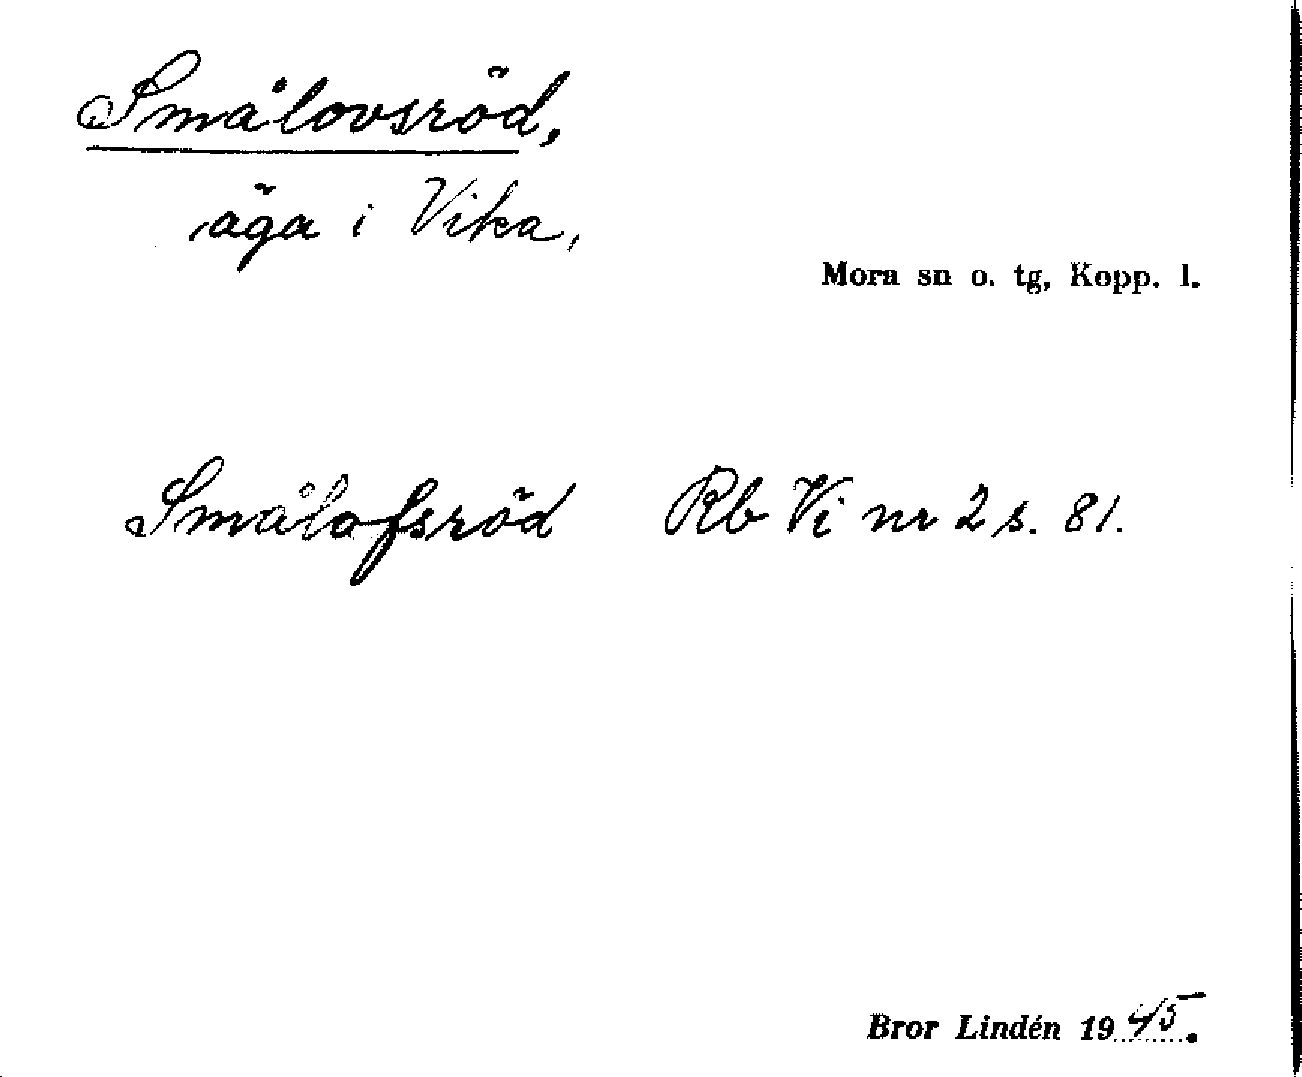 Smålovsröd,
äga i Vika,
Mora sn o. tg, Kopp. l.
Smålofsröd Rb Vi nr 2 s. 81.
Bror Lindén 1945.